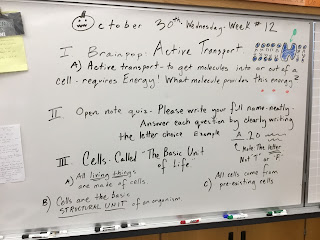 October 30th. Wednesday. Week #12
I Brainpop: Active Transport
A) Active transport - to get molecules into or out of a
cell - requires Energy! What molecule provides this energy?
II Open note quiz - Please write your full name - neatly -
Answer each question by clearly writing
the letter choice Example
A 20
Note: The letter
Not "T" or "F"
III Cells - Called "The Basic Unit
of Life"
A) All living things
are made of cells.
B) Cells are the basic
STRUCTURAL UNIT of an organism
C) All cells come from
pre-existing cells